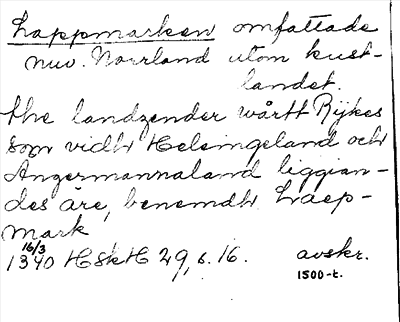 Lappmarken omfattade
nuv. Norrland utom kust-
landet.
the landzender wårtt Rijkes
som vidtr Helsingeland och
Angermannaland liggian-
des äre, benemdtr Laep-
mark
16/3
1340 HSkH 29, s. 16. avskr.
1500-t.